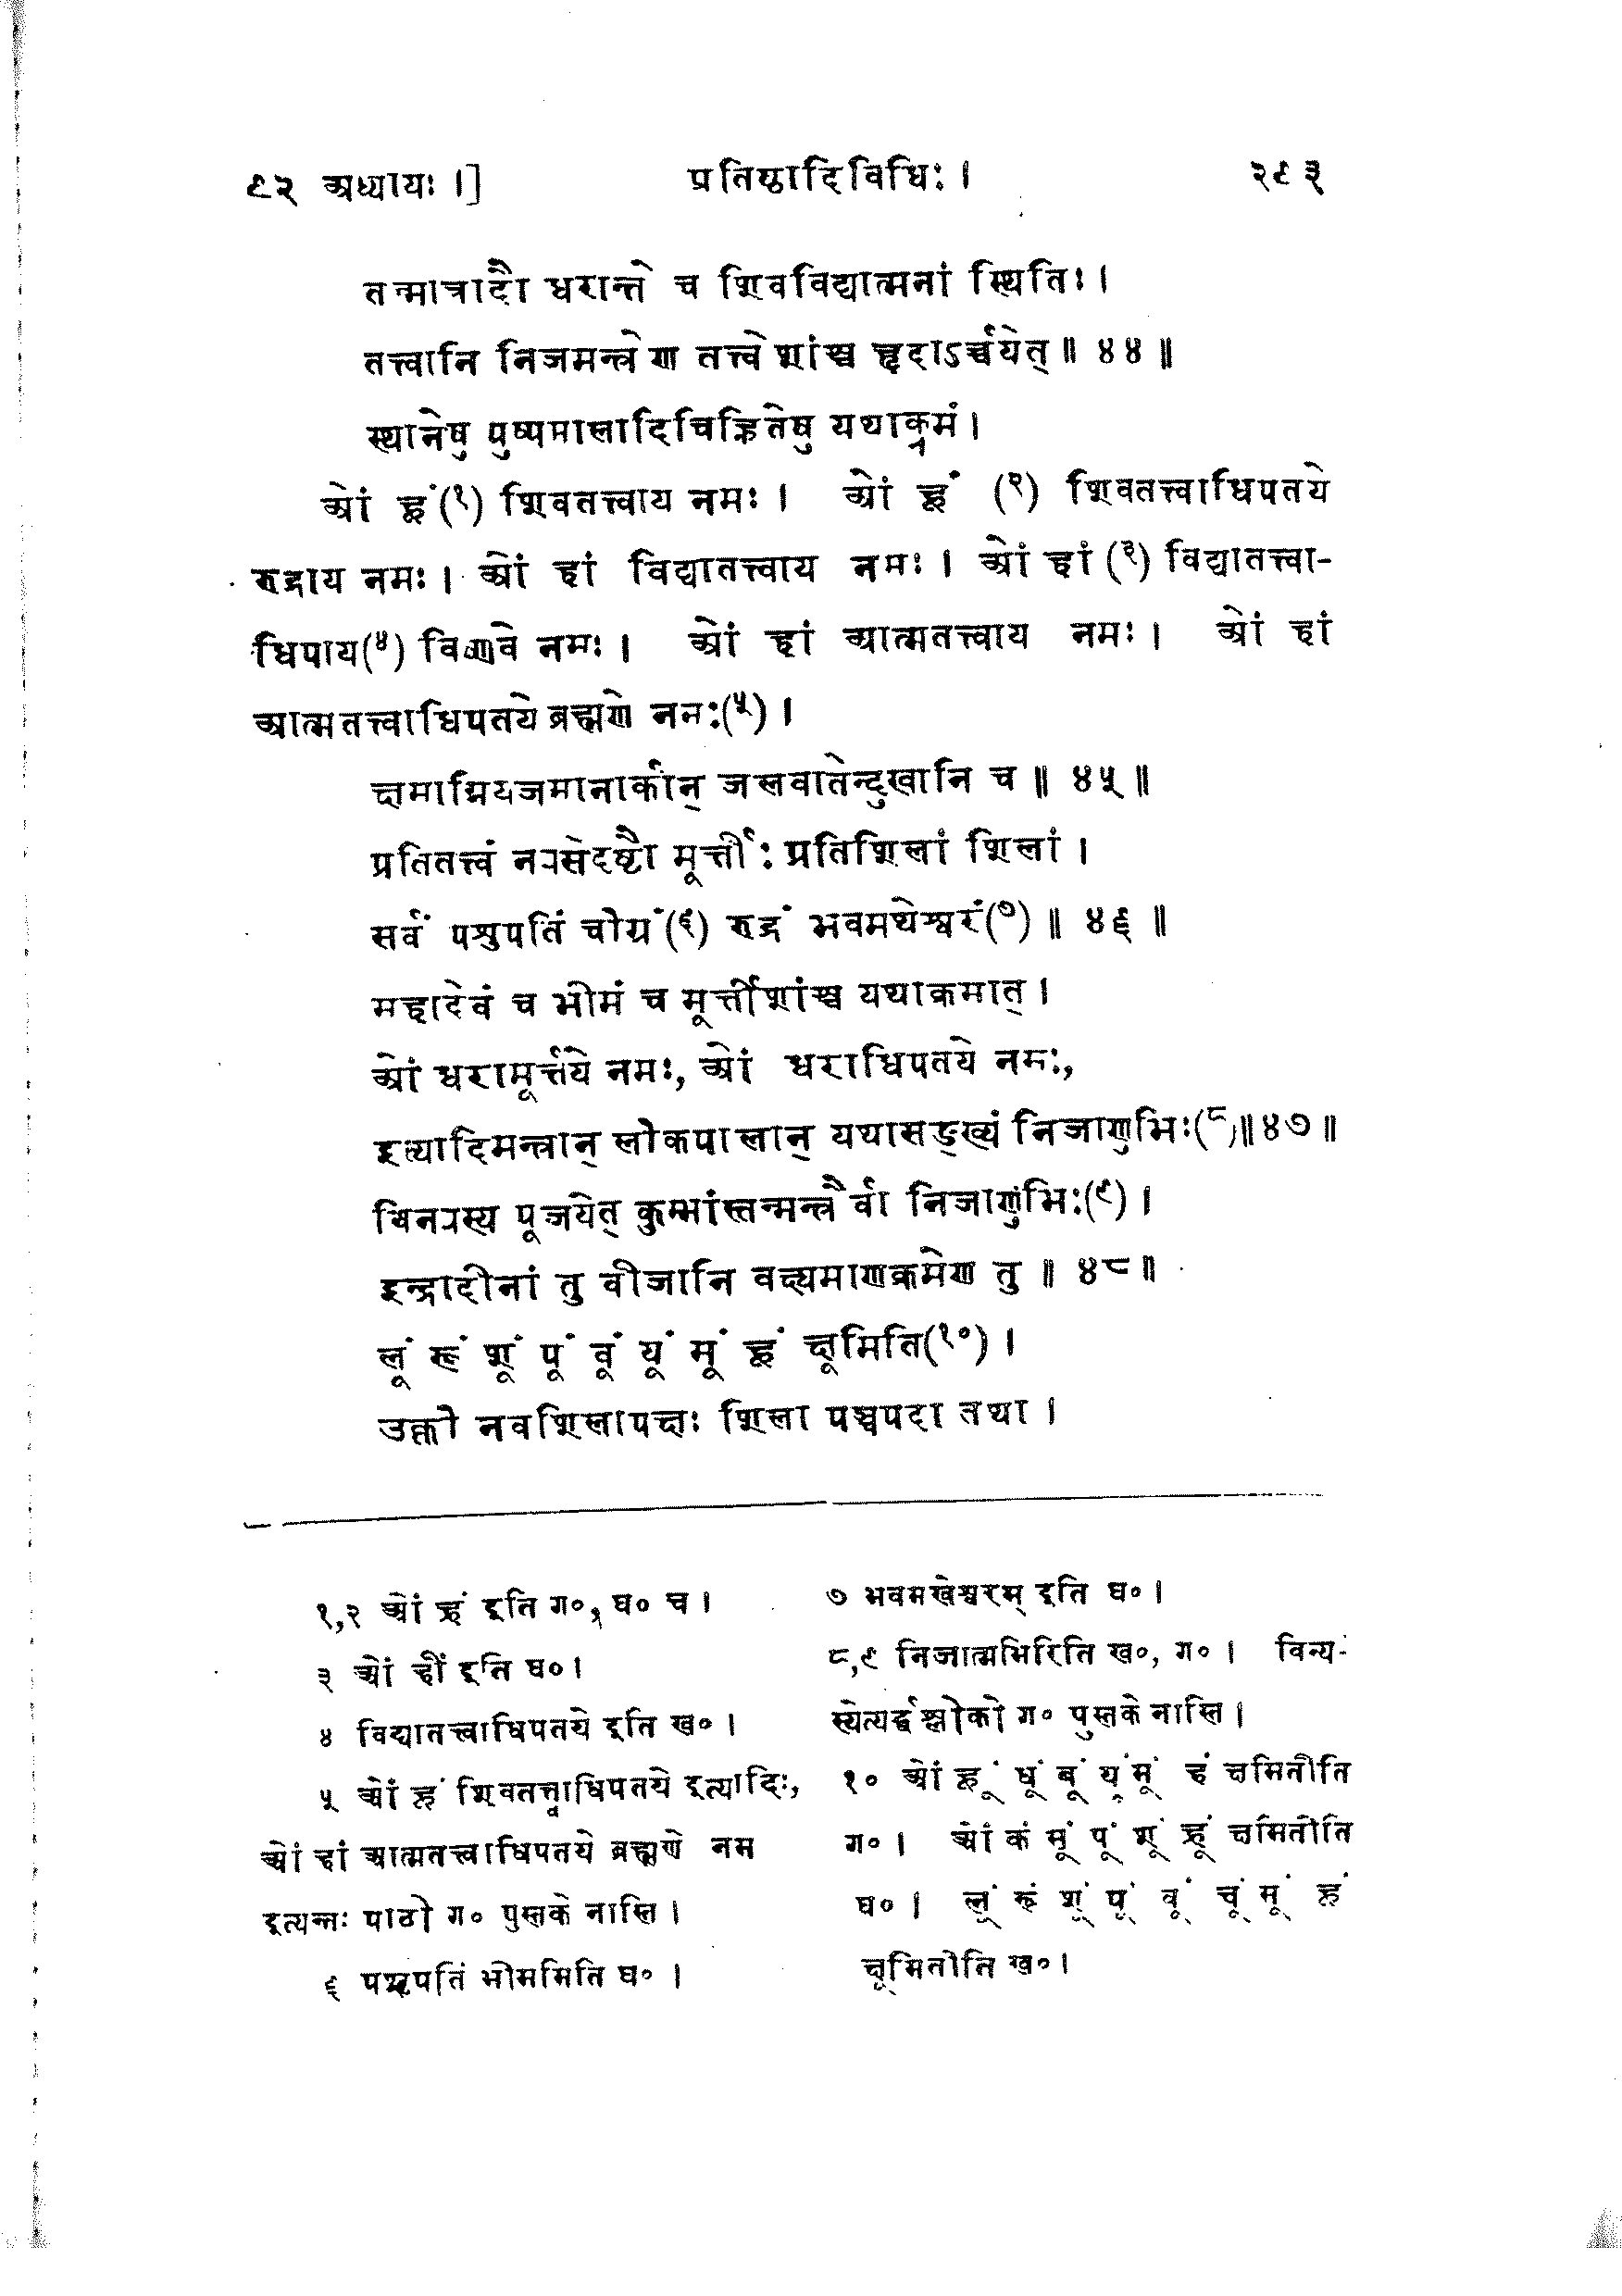 ९२ अध्यायः ।] प्रतिष्ठादिविधिः । २९३
तन्मात्रादौ धरान्ते च शिवविद्यात्मनां स्थितिः ।
तत्त्वानि निजमन्त्रेण तत्त्वेशांश्च हृदाऽर्च्चयेत् ॥ ४४ ॥
स्थानेषु पुष्पमालादिचिह्नितेषु यथाक्रमं ।
ओं ह्रूं(१) शिवतत्त्वाय नमः । ओं ह्रूं (२) शिवतत्त्वाधिपतये
रुद्राय नमः । ओं हां विद्यातत्त्वाय नमः । ओं हां (३) विद्यातत्त्वा-
धिपाय(४) विष्णवे नमः । ओं हां आत्मतत्त्वाय नमः । ओं हां
आत्मतत्त्वाधिपतये ब्रह्मणे नमः(५) ।
क्षमाग्नियजमानार्कान् जलवातेन्दुखानि च ॥ ४५ ॥
प्रतितत्त्वं न्यसेदष्टौ मूर्त्तीः प्रतिशिलां शिलां ।
सर्वं पशुपतिं चोग्रं(६) रुद्रं भवमथेश्वरं(७) ॥ ४६ ॥
महादेवं च भीमं च मूर्त्तीशांश्च यथाक्रमात् ।
ओं धरामूर्त्तये नमः, ओं धराधिपतये नमः,
इत्यादिमन्त्रान् लोकपालान् यथासङ्ख्यं निजाणुभिः(८)॥४७॥
विन्यस्य पूजयेत् कुम्भांस्तन्मन्त्रैर्वा निजाणुभिः(९) ।
इन्द्रादीनां तु वीजानि वक्ष्यमाणक्रमेण तु ॥ ४८ ॥
लूं रूं शूं पूं वूं यूं मूं ह्रूं क्षूमिति(१०) ।
उक्तो नवशिलापक्षः शिला पञ्चपदा तथा ।
१,२ ओं ह्रं इति ग०, घ० च ।
३ ओं हीं इति घ० ।
४ विद्यातत्त्वाधिपतये इति ख० ।
५ ओं ह्रं शिवतत्त्वाधिपतये इत्यादिः,
ओं हां आत्मतत्त्वाधिपतये ब्रह्मणे नम
इत्यन्तः पाठो ग० पुस्तके नास्ति ।
६ पशुपतिं भीममिति घ० ।
७ भवमखेश्वरम् इति घ० ।
८,९ निजात्मभिरिति ख०, ग० । विन्य-
स्येत्यर्द्धश्लोको ग० पुस्तके नास्ति ।
१० ओं ह्रूं धूं बूं यूं मूं हं क्षमितीति
ग० । ओं कं मूं पूं शूं ह्रूं क्षमितीति
घ० । लूं रूं शूं पूं वूं चूं मूं ह्रं
क्षूमितीति ख० ।